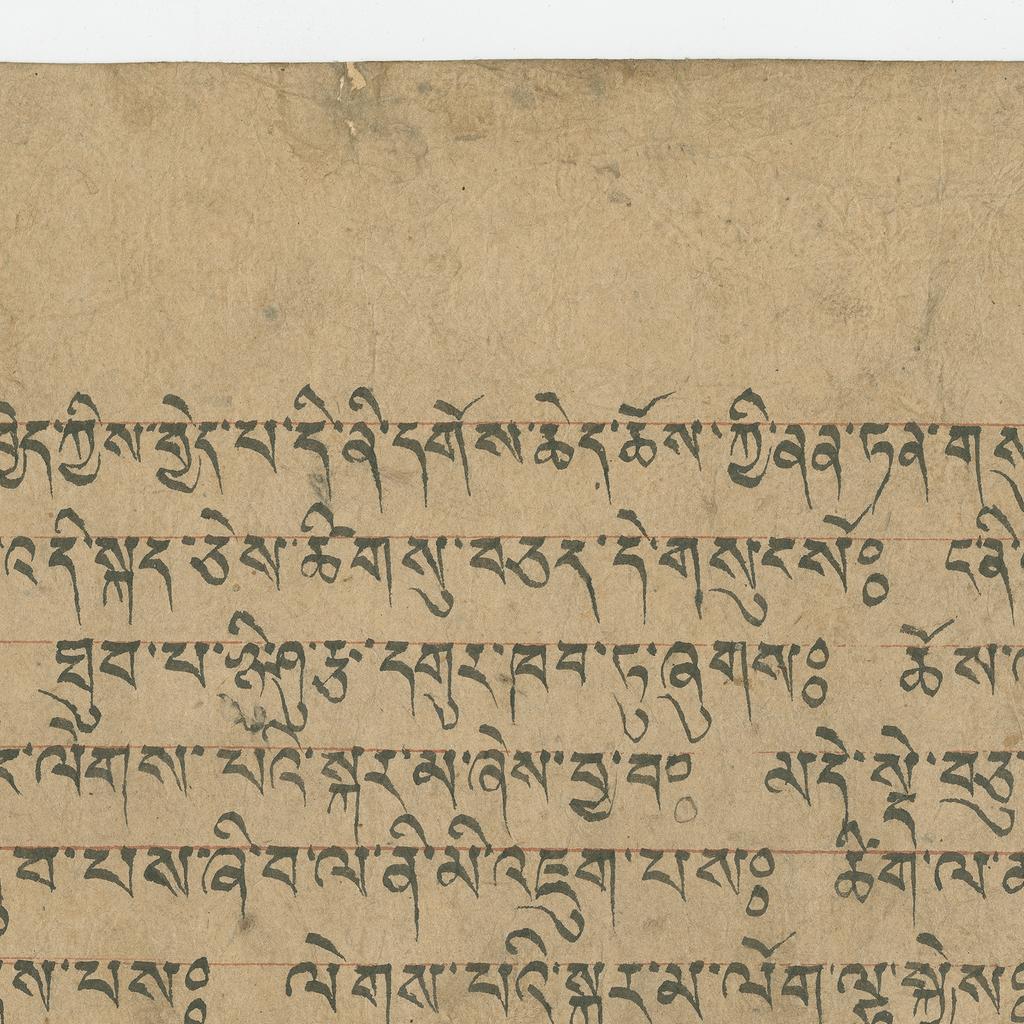 བྱེད་ཀྱིས་བྱེད་པ་ནི་དགོས་ཆེད་ཆོས་ཀྱི་ནན་ཏན་ག
འདི་སྐད་ཅེས་ཚིག་སུ་བཅད་དེ་གསུངས་སོ༔ ད་ནི
གྲུབ་པ་དགུར་ཁབ་ཏུ་ཞུགས༔ ཆོས
ལེགས་པའི་སྐར་མ་ཞེས་བྱ་བ༔ མདེ་སྡེ་བཅུ
བ་པས་ཞིབ་ལ་ནི་མི་འཇུག་པས༔ ཚིག་ལ
ས་པས༔ ལེགས་པའི་སྐར་མ་ལོག་ལྟ་སྐྱེས༔